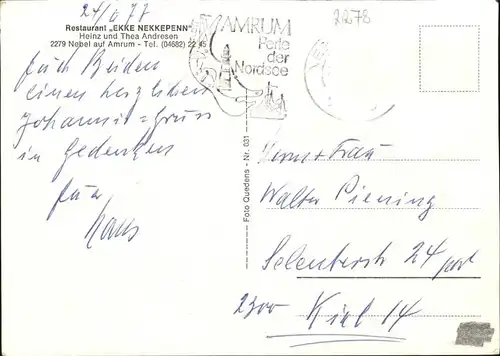 24/6 77
Restaurant „EKKE NEKKEPENN"
Heinz und Thea Andresen
2279 Nebel auf Amrum - Tel. (04682) 22 45
Euch Beiden
einen herzlichen
Johannis=Gruss
in Gedenken
Euer
Hans
AMRUM
Perle
der
Nordsee
2278
Foto Quedens - Nr. 031
Herrn + Frau
Walter Piening
Selenterstr 24
2300 Kiel 14